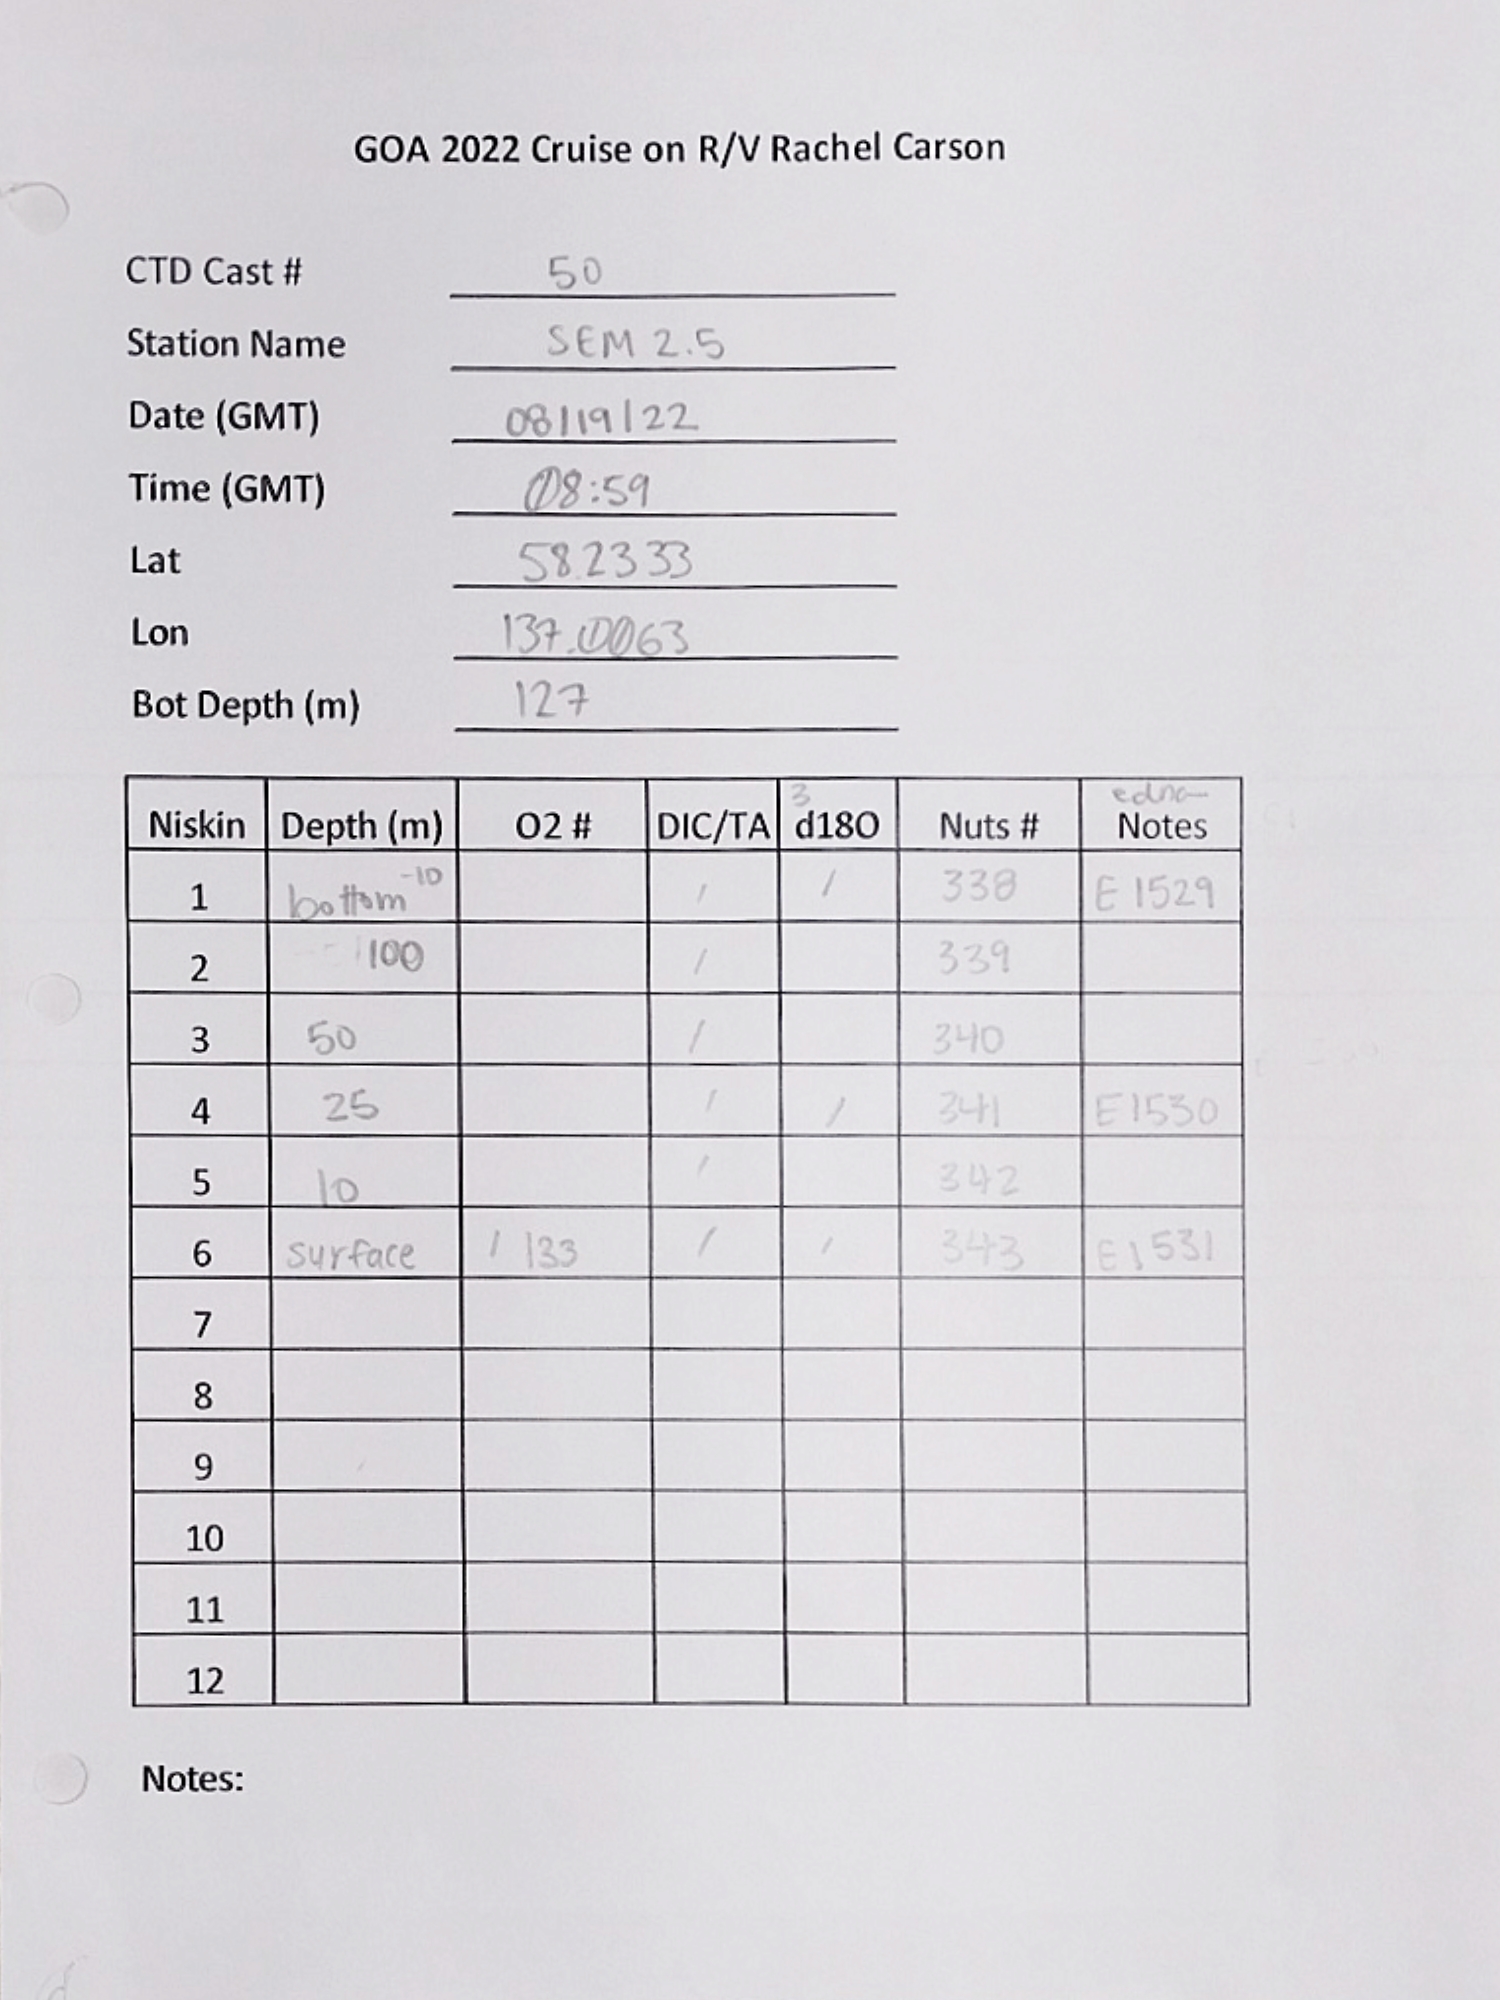 GOA 2022 Cruise on R/V Rachel Carson
CTD Cast # 50
Station Name SEM 2.5
Date (GMT) 08/19/22
Time (GMT) 08:59
Lat 58.2333
Lon 137.0063
Bot Depth (m) 127
3 edna
Niskin Depth (m) O2 # DIC/TA d18O Nuts # Notes
1 bottom -10 / / 338 E1529
2 100 / 339
3 50 / 340
4 25 / / 341 E1530
5 10 / 342
6 surface / 133 / / 343 E1531
7
8
9
10
11
12
Notes: